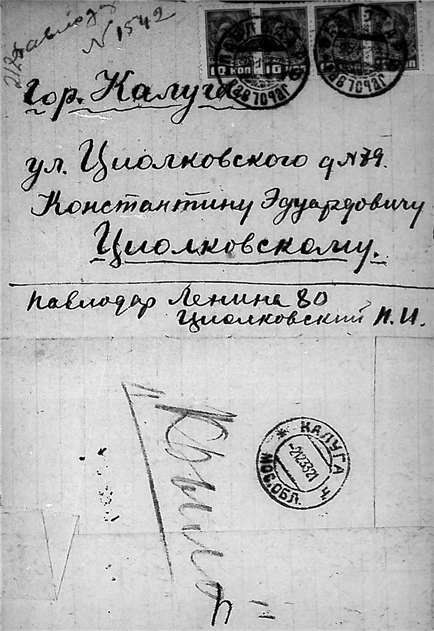 Павлодар
N 1542
10 КОП. 10
гор. Калуга
ул. Циолковского д N79.
Константину Эдуардовичу
Циолковскому.
Павлодар Ленина 80
Циолковский П.И.
КАЛУГА
МОС. ОБЛ.
"Крыло"